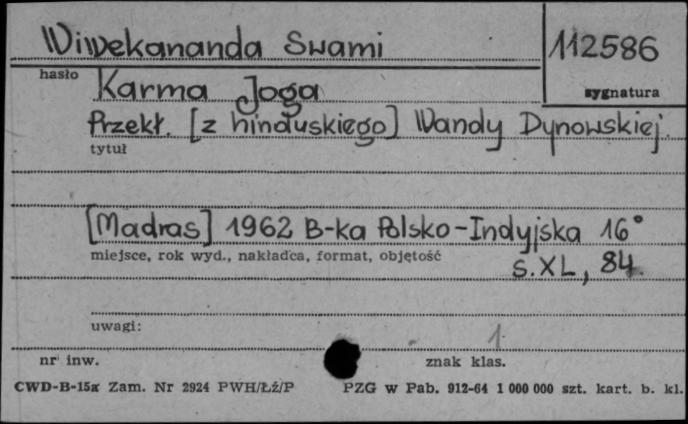 Wiwekananda Swami
112586
hasło
sygnatura
Karma Joga
Przekł. [z hinduskiego] Wandy Dynowskiej.
tytuł
[Madras] 1962 B-ka Polsko-Indyjska 16°
miejsce, rok wyd., nakładca, format, objętość
s. XL, 84.
uwagi:
1
nr inw.
znak klas.
CWD-B-15a Zam. Nr 2924 PWH/Łź/P
PZG w Pab. 912-64 1 000 000 szt. kart. b. kl.